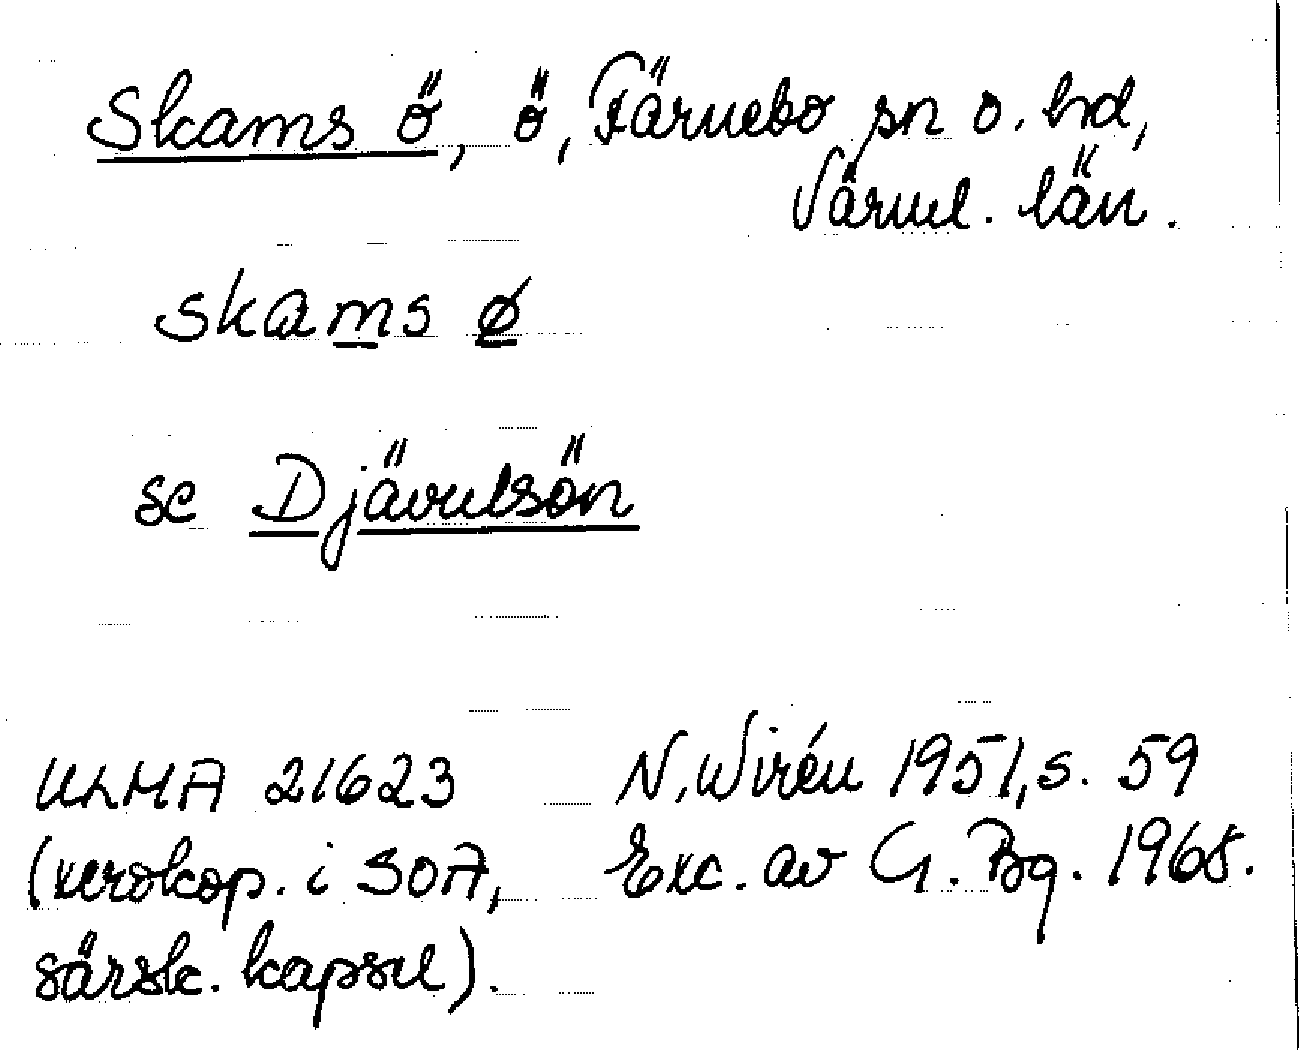 Skams ö, ö, Färnebo sn o. hd,
Värml. län.
skams ø
se Djävulsön
ULMA 21623
(xerokop. i SOA,
särsk. kapsel).
N. Wirén 1951, s. 59
Exc. av G. Bg. 1968.